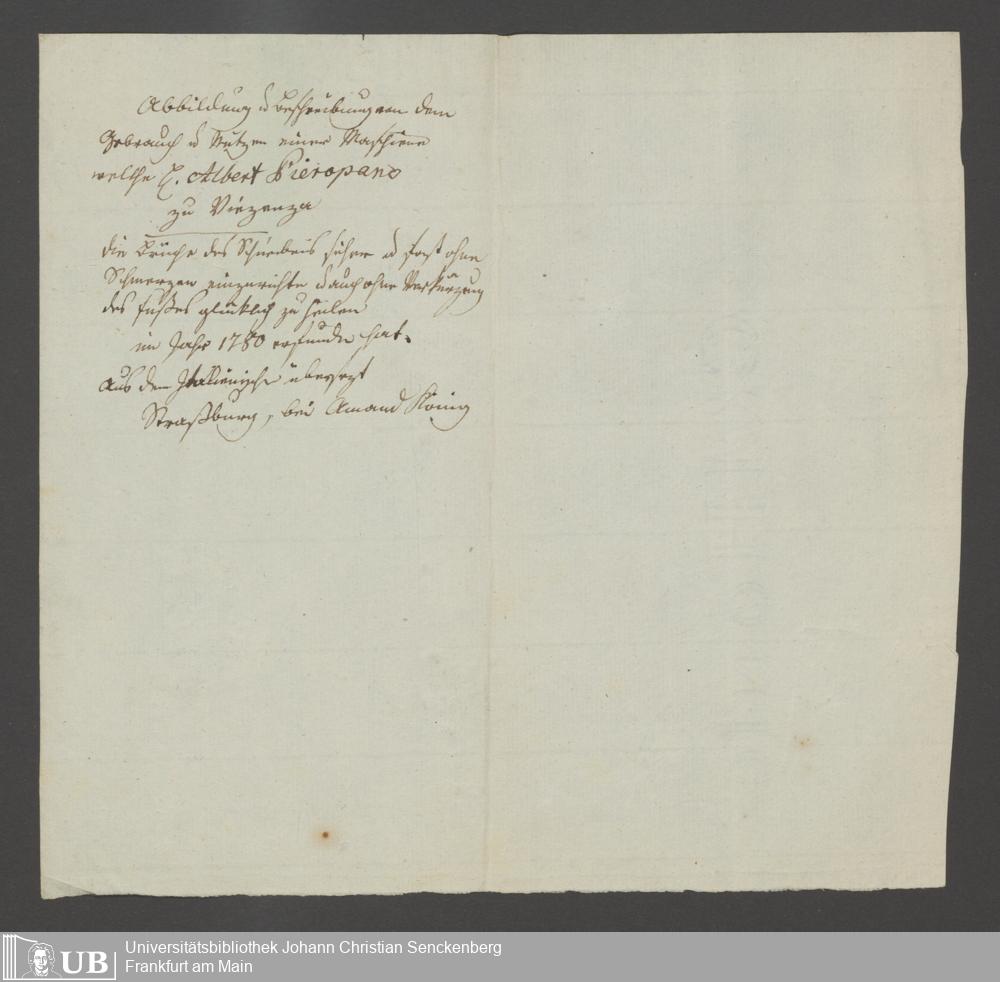 Abbildung u Beschreibung von dem
Gebrauch u Nutzen einer Maschiene
welche H. Albert Pieropano
zu Viezenza
die Brüche des Schienbeins sicher u fast ohne
Schmerzen einzurichten u auch ohne Verkürzung
des Fußes glücklich zu heilen
im Jahr 1780 erfunden hat.
Aus dem Italienische übersezt
Straßburg, bei Amand König
UB
Universitätsbibliothek Johann Christian Senckenberg
Frankfurt am Main